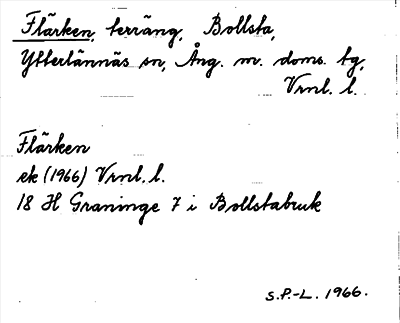 Flärken, terräng, Bollsta,
Ytterlännäs sn, Ång. m. doms. tg,
Vrnl. l.
Flärken
ek (1966) Vrnl. l.
18 H Graninge 7 i Bollstabruk
S.P.-L. 1966.